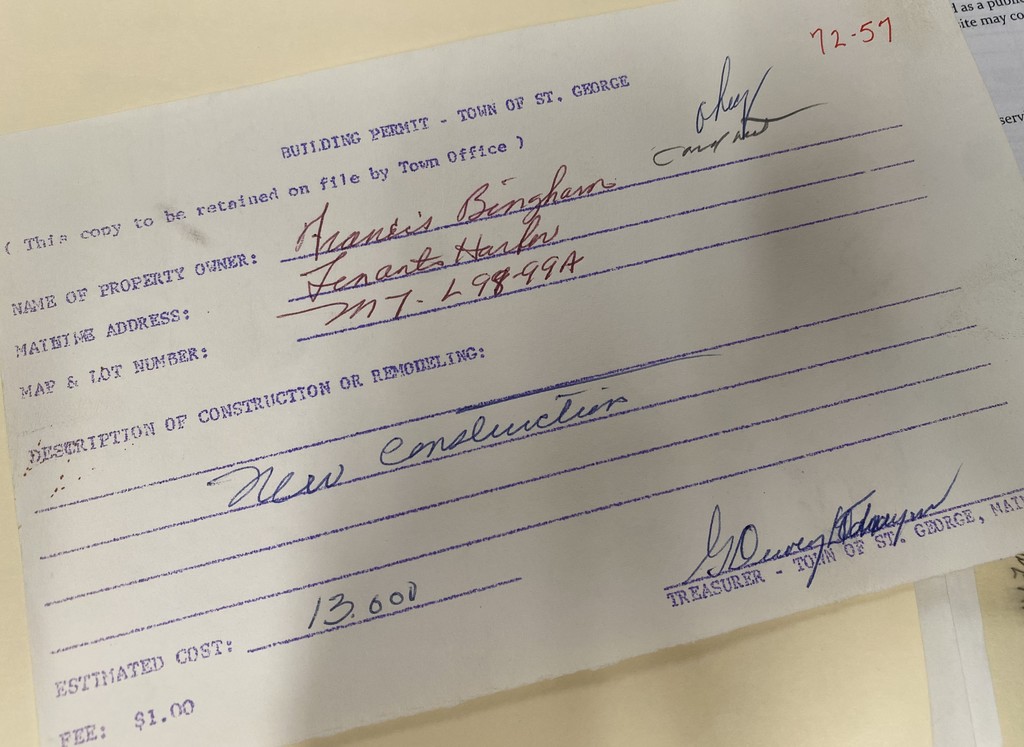 72-57
BUILDING PERMIT - TOWN OF ST. GEORGE
( This copy to be retained on file by Town Office )
NAME OF PROPERTY OWNER: Francis Bingham
MAILING ADDRESS: Tenants Harbor
MAP & LOT NUMBER: M7-L98-99A
DESCRIPTION OF CONSTRUCTION OR REMODELING:
New Construction
TREASURER - TOWN OF ST. GEORGE, MAIN
ESTIMATED COST: 13.000
FEE: $1.00
as a public
site may co
serv